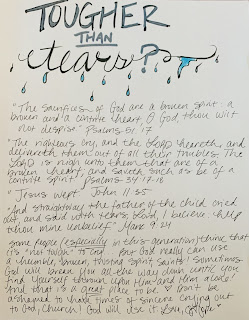 TOUGHER
THAN
tears?
"The sacrifices of God are a broken spirit: a
broken and a contite heart, O God, thou wilt
not despise" Psalms 51:17
"The righteous cry, and the LORD heareth, and
delivereth them out of all their troubles. The
LORD is nigh unto them that are of a
broken heart; and saveth such as be of a
contrite spirit." Psalms 34:17-18
"Jesus wept" John 11:35
"And straightway the father of the child cried
out, and said with tears, Lord, I believe: help
thou mine unbelief" Mark 9:24
Some people (especially in this generation) think that
it's "not tough" to cry. But God really can use
a humble, broken, thirsting spirit, Saints! Sometimes
God will break you all the way down until you
find yourself thrown upon Him and Him alone!
And that is a great place to be. Don't be
ashamed to have times of sincere crying out
to God, Church! God will use it. Love,